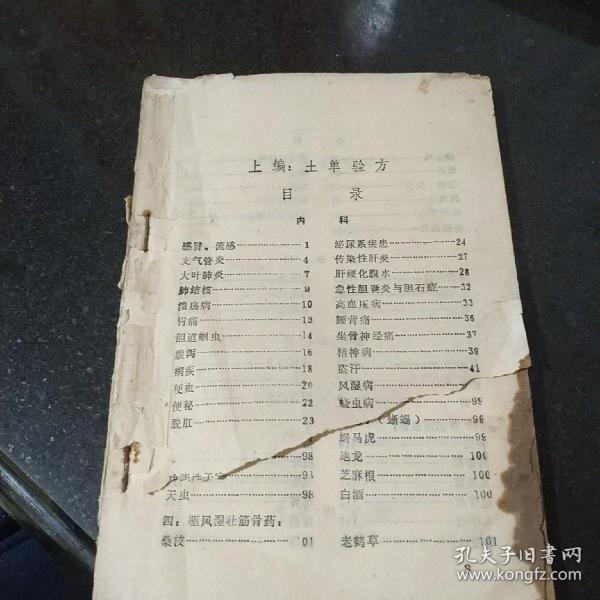 上编：土单验方
目 录
内 科
感冒、流感 1
支气管炎 4
大叶肺炎 7
肺结核 9
溃疡病 10
胃痛 13
胆道蛔虫 14
腹泻 16
痢疾 18
便血 20
便秘 22
脱肛 23
泌尿系疾患 24
传染性肝炎 27
肝硬化腹水 28
急性胆囊炎与胆石症 32
高血压病 33
腰背痛 36
坐骨神经痛 37
精神病 39
盗汗 41
风湿病
蛲虫病 99
（蜥蜴） 99
蝎马虎 99
地龙 100
芝麻根 100
白酒 100
98
天虫 98
四：驱风湿壮筋骨药：
桑枝 101
老鹤草 101
孔夫子旧书网
www.kongfz.com